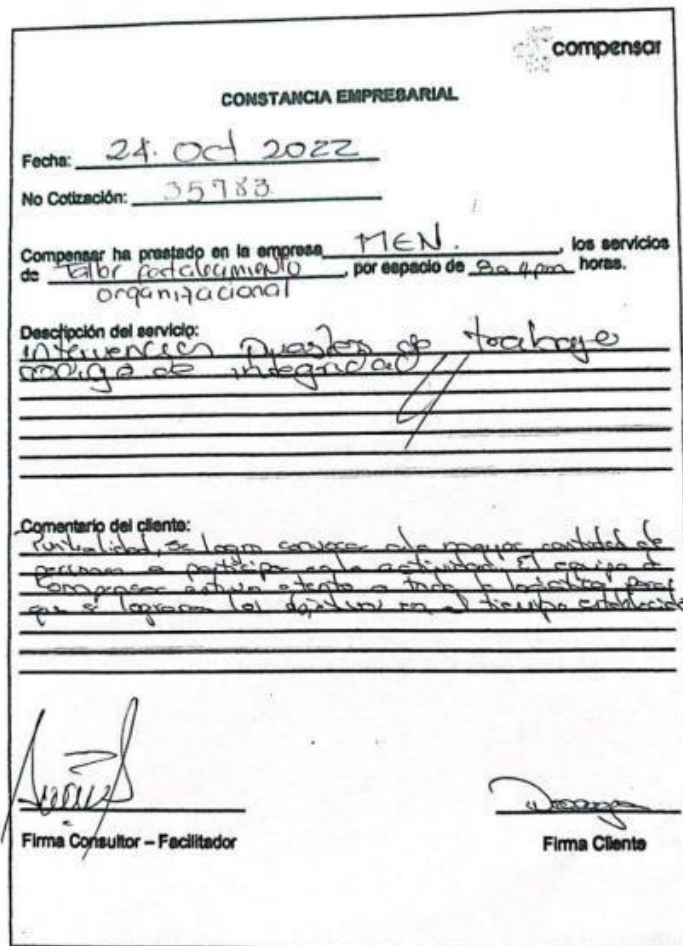 compensar
CONSTANCIA EMPRESARIAL
Fecha: 24. Oct 2022
No Cotización: 35783
Compensar ha prestado en la empresa MEN. , los servicios
de Taller fortalecimiento , por espacio de 8a 4pm horas.
organizacional
Descripción del servicio:
intervención Puestos de trabajo
código de integridad
Comentario del cliente:
Puntualidad, se logro convocar a la mayor cantidad de
personas a participar en la actividad. El equipo de
Compensar estuvo atento a toda la logistica para
que se lograran los objetivos en el tiempo establecido
Firma Consultor – Facilitador
Firma Cliente